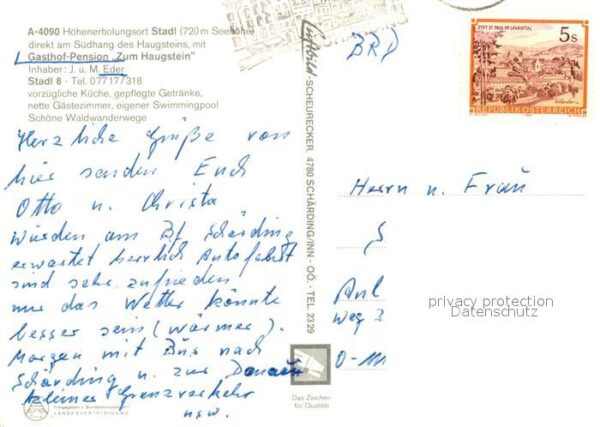 A-4090 Höhenerholungsort Stadl (720 m Seehöhe)
direkt am Südhang des Haugsteins, mit
Gasthof-Pension „Zum Haugstein"
Inhaber: J. u. M. Eder
Stadl 8 - Tel. 07717/318
vorzügliche Küche, gepflegte Getränke,
nette Gästezimmer, eigener Swimmingpool
Schöne Waldwanderwege
Herzliche Grüße von
hier senden Euch
Otto u. Christa
Wurden am Bf Schärding
erwartet herrlich Autofahrt
sind sehr zufrieden
nur das Wetter könnte
besser sein (wärmer).
Morgen mit Bus nach
Schärding u. zur Donau
kleiner Grenzverkehr
usw.
LANDESVERTEIDIGUNG
Luftbild-SCHEURECKER 4780 SCHÄRDING/INN - OÖ. - TEL 23 29
Das Zeichen
für Qualität
BRD
STIFT ST. PAUL IM LAVANTTAL
5s
REPUBLIK ÖSTERREICH
Herrn u. Frau
privacy protection
Datenschutz